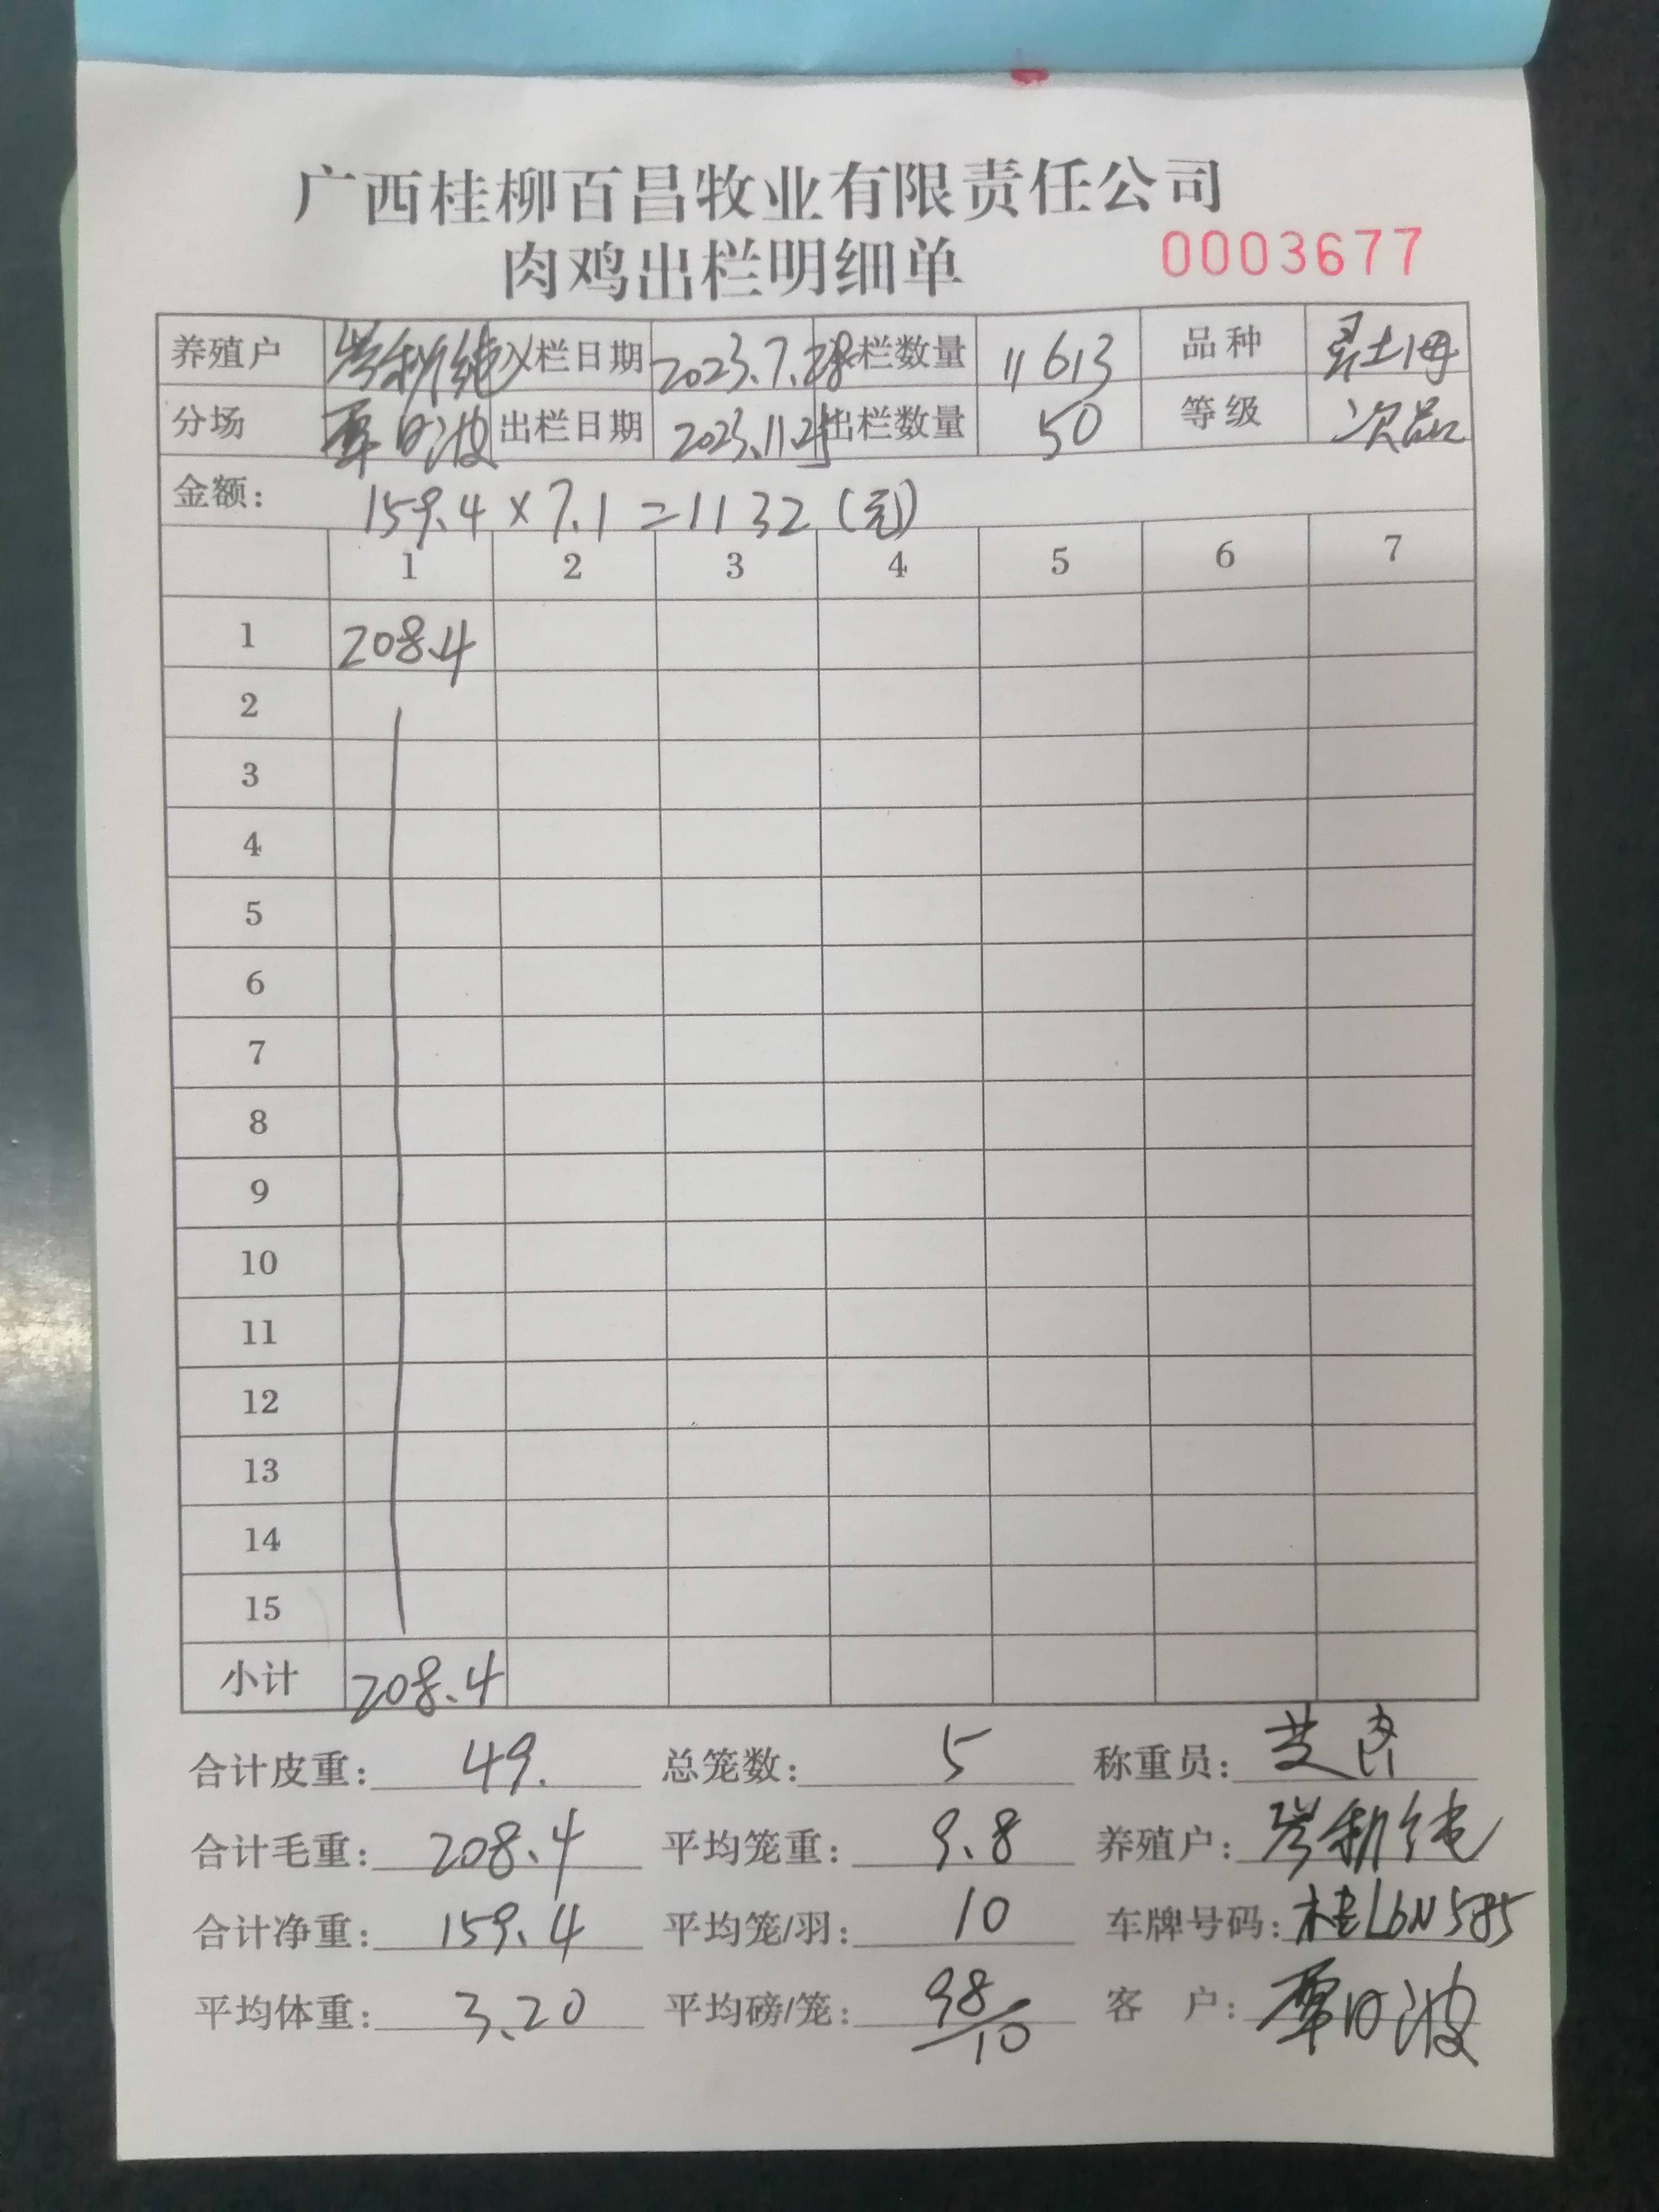 广西桂柳百昌牧业有限责任公司
肉鸡出栏明细单 0003677
养殖户 入栏日期 2023.7.28 入栏数量 11613 品种 土
分场 覃日波 出栏日期 2023.11.25 出栏数量 50 等级 次品
金额: 159.4 × 7.1 = 1132 (元)
1 2 3 4 5 6 7
1 208.4
2
3
4
5
6
7
8
9
10
11
12
13
14
15
小计 208.4
合计皮重: 49. 总笼数: 5 称重员:
合计毛重: 208.4 平均笼重: 9.8 养殖户:
合计净重: 159.4 平均笼/羽: 10 车牌号码: 桂L6N585
平均体重: 3.20 平均磅/笼: 98/10 客 户: 覃日波